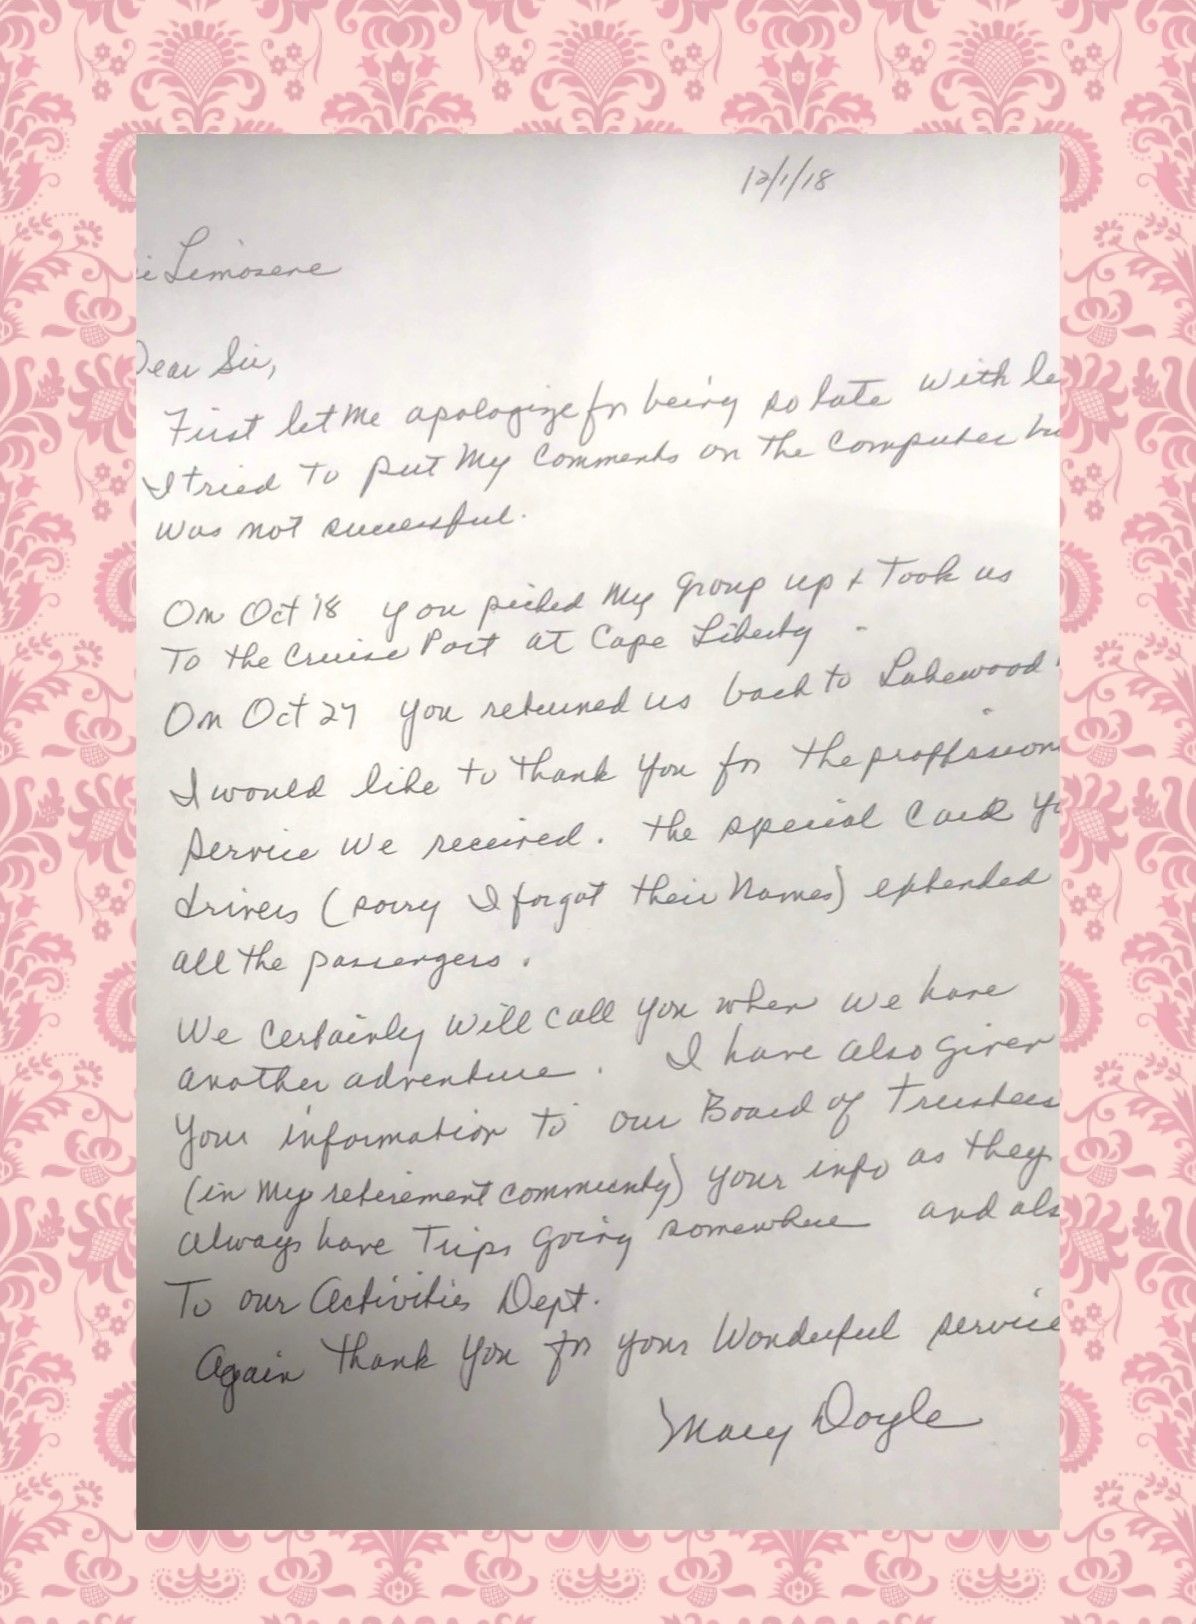 12/1/18
i Limosene
Dear Sir,
First let Me apologize for being so late with le
I tried to put My Comments on the Computer bu
was not successful.
On Oct 18 you picked My group up & Took us
To the Cruise Port at Cape Liberty.
On Oct 27 you returned us back to Lakewood
I would like to thank you for the proffssion
service we received. The special care yo
drivers (sorry I forgot their Names) extended
all the passengers.
We certainly will call you when we have
another adventure. I have also given
your information to our Board of Trustees
(in My retirement community) your info as they
always have Trips going somewhere and als
To our Activities Dept.
Again thank you for your Wonderful service
Mary Doyle